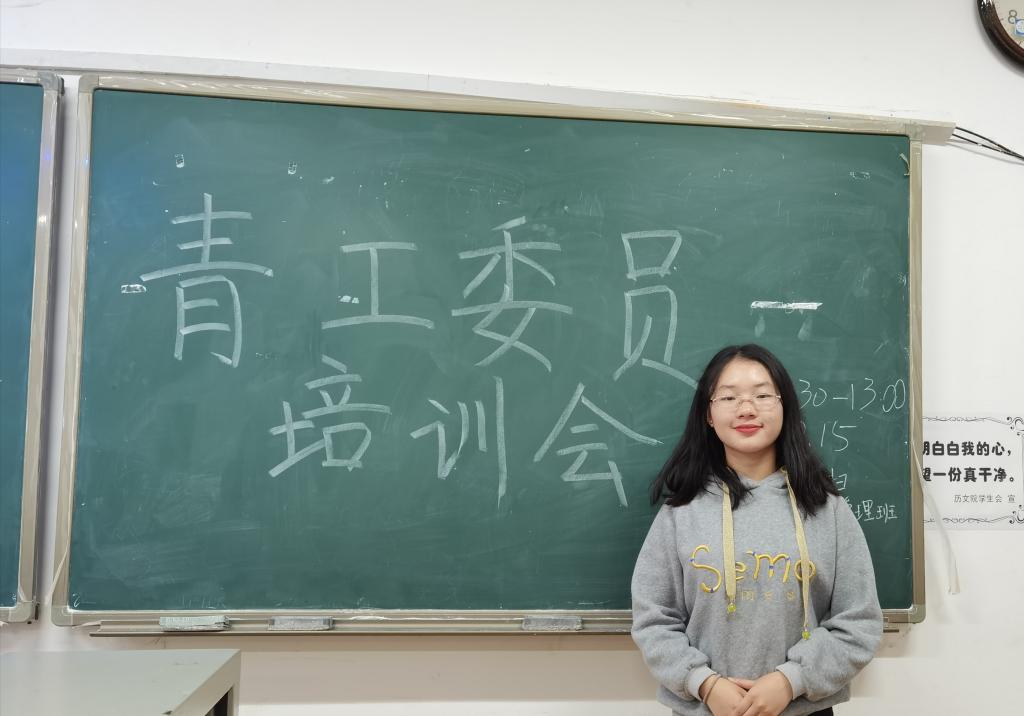 青工委员
培训会
30-13:00
15
理班
明白白我的心，
望一份真干净。
历文院学生会 宣
Semo
mes
8